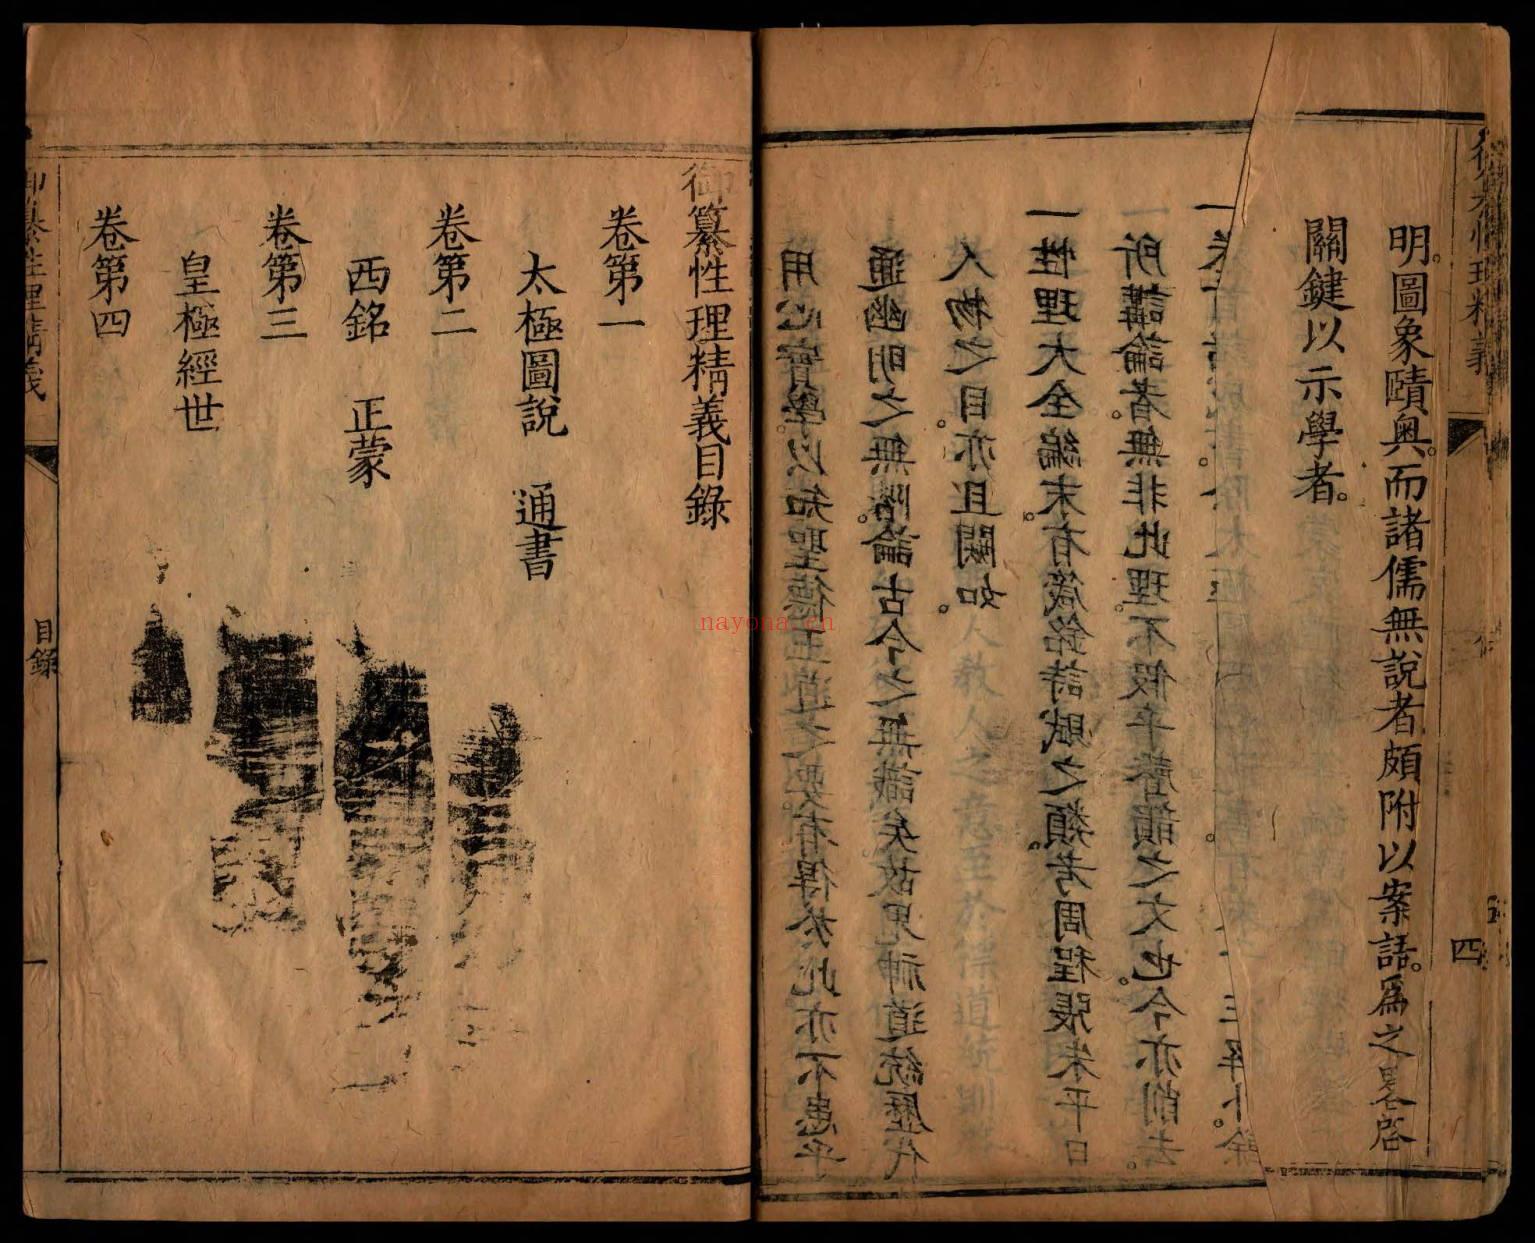 御纂性理精義
四
明。圖象賾奧。而諸儒無說者頗附以案語。爲之畧啓
關鍵以示學者。
用心實學。以知聖德王道之要。有得於此亦不患乎
通幽明之無階。論古今之無識矣。故鬼神道統歷代
人物之目。亦且闕如。
一性理大全編末。有箴銘詩賦之類。考周程張朱平日
所講論者。無非此理。不假乎聲韻之文也。今亦削去。
一卷首諸成書。除太極
御纂性理精義目錄
卷第一
太極圖說　通書
卷第二
西銘　正蒙
卷第三
皇極經世
卷第四
御纂性理精義
目錄
一
nayona.cn